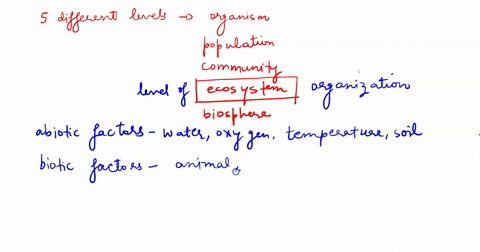 5 different levels → organism
population
community
level of ecosystem organization
biosphere
abiotic factors - water, oxygen, temperature, soil
biotic factors - animal,